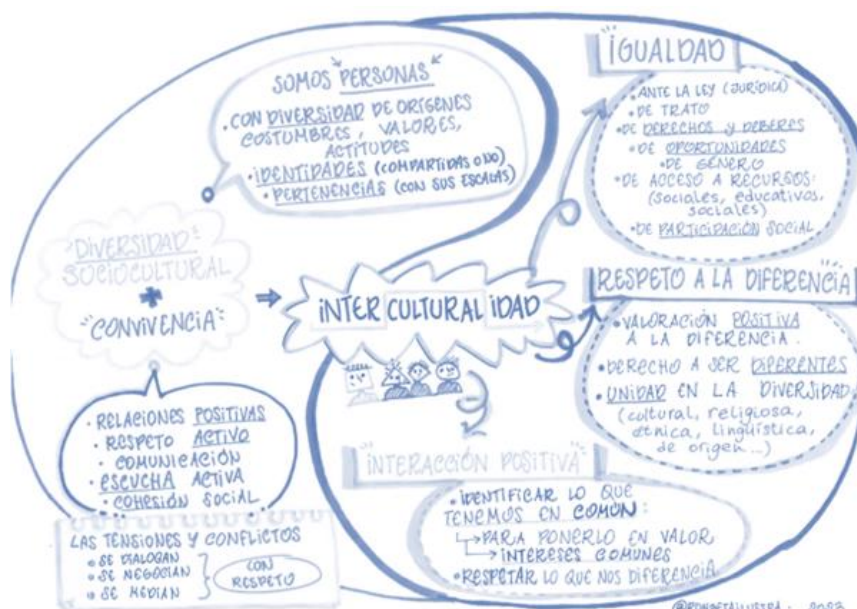 SOMOS PERSONAS
• CON DIVERSIDAD DE ORÍGENES
COSTUMBRES, VALORES,
ACTITUDES
• IDENTIDADES (COMPARTIDAS O NO)
• PERTENENCIAS (CON SUS ESCALAS)
DIVERSIDAD
SOCIOCULTURAL
+
"CONVIVENCIA"
• RELACIONES POSITIVAS
• RESPETO ACTIVO
• COMUNICACIÓN
• ESCUCHA ACTIVA
• COHESIÓN SOCIAL
LAS TENSIONES Y CONFLICTOS
• SE DIALOGAN
• SE NEGOCIAN
• SE MEDIAN
CON
RESPETO
INTERCULTURALIDAD
IGUALDAD
• ANTE LA LEY (JURÍDICA)
• DE TRATO
• DE DERECHOS Y DEBERES
• DE OPORTUNIDADES
• DE GÉNERO
• DE ACCESO A RECURSOS:
(sociales, educativos,
sociales)
• DE PARTICIPACIÓN SOCIAL
RESPETO A LA DIFERENCIA
• VALORACIÓN POSITIVA
A LA DIFERENCIA.
• DERECHO A SER DIFERENTES
• UNIDAD EN LA DIVERSIDAD
(cultural, religiosa,
étnica, lingüística,
de origen...)
INTERACCIÓN POSITIVA
• IDENTIFICAR LO QUE
TENEMOS EN COMÚN:
→ PARA PONERLO EN VALOR
→ INTERESES COMUNES
• RESPETAR LO QUE NOS DIFERENCIA
2023